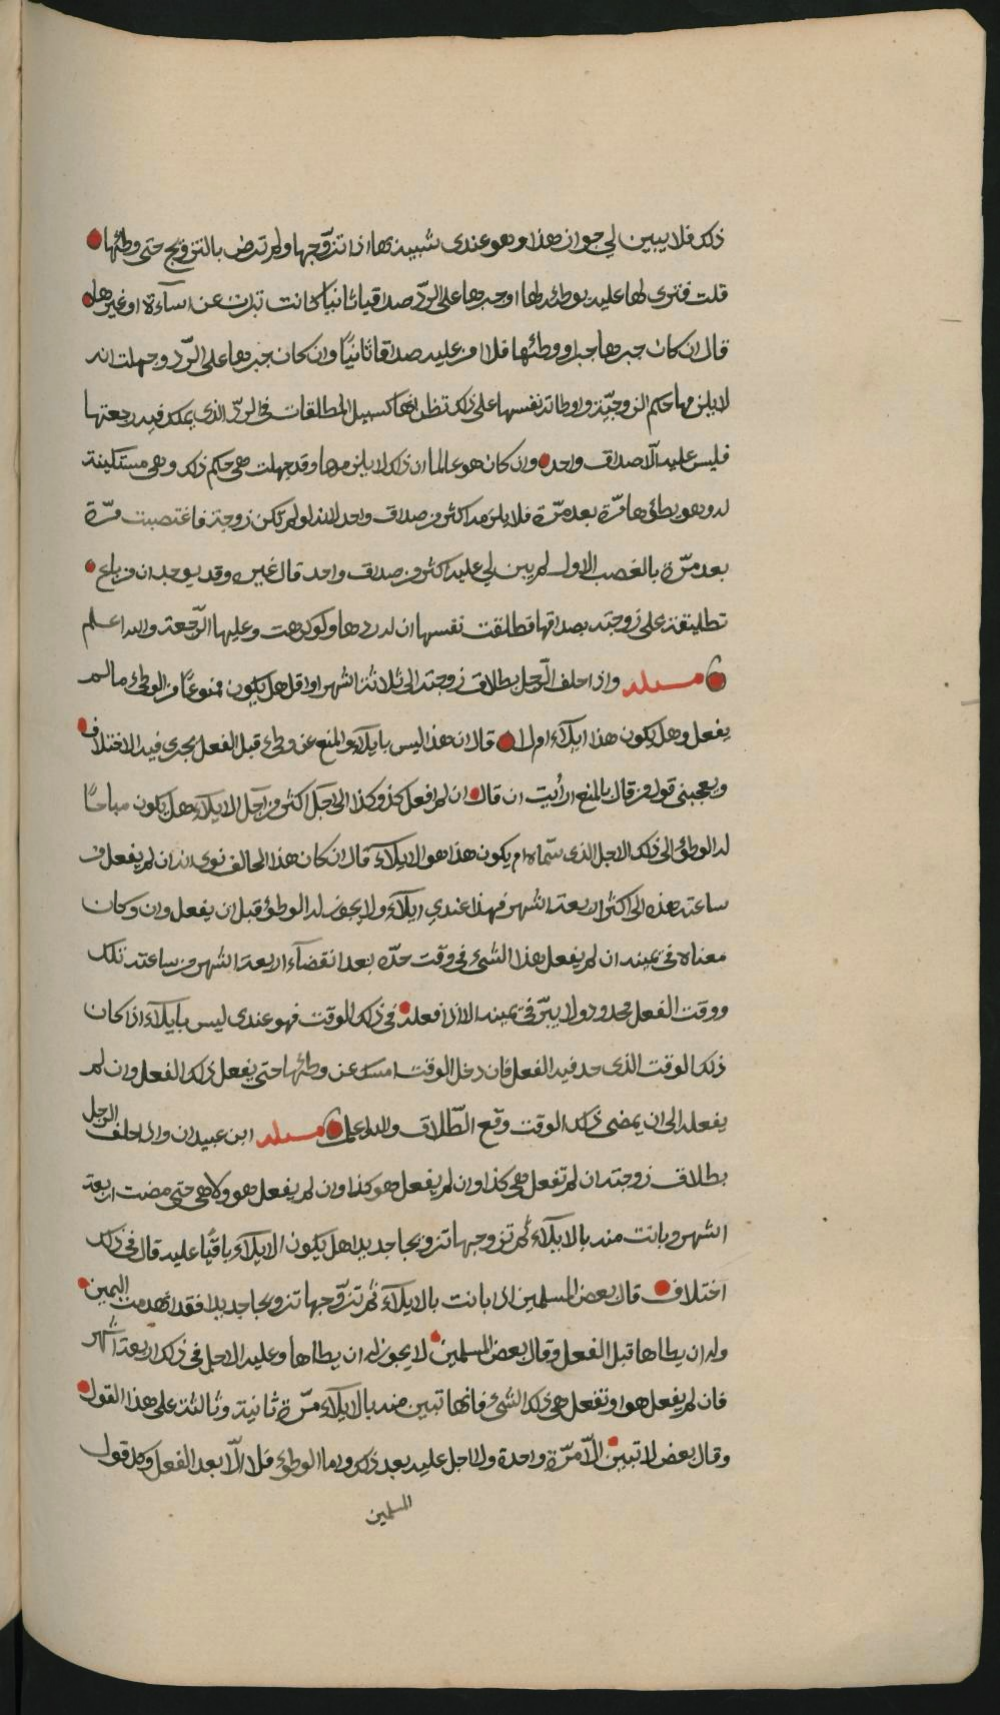 ذلك فلا يبين لي جواز هذا وهو عندي شبيه بها اذا تزوّجها ولم ترض بالتزويج حتى وطئها
قلت فترى لها عليه بوطئه لها او جبرها على الردّ صداقا ثانيا كانت تبرت عن اساءة او غيرها
قال ان كان جبرها جبرا ووطئها فلها عليه صداقا ثانيًا وان كان جبرها على الردّ وجهلت انه
لا يلزمها حكم الزوجيّة واوطاته نفسها على ذلك تظن انها كسبيل المطلقات في الردّ الذي يملك فيه رجعتها
فليس عليه الّا صداق واحد وان كان هو عالما ان ذلك لا يلزمها وقد جهلت هي حكم ذلك وهي مستكينة
له وهو يطؤها مرّة بعد مرّة فلا يلزمه اكثر من صداق واحد لانه لو لم تكن زوجته فاغتصبت مرّة
بعد مرّة بالغصب الاول لم يبن لي عليه اكثر من صداق واحد قال غيره وقد يوجد ان من باع
تطليقة على زوجته بصداقها فطلقت نفسها ان له ردها ولو كرهت وعليها الرّجعة والله اعلم
مسئله واذا حلف الرّجل بطلاق زوجته الى ثلاثة اشهر او اقل هل يكون ممنوعًا من الوطئ ما لم
يفعل وهل يكون هذا ايلآء ام لا قال ان هذا ليس بايلآء والمنع عن وطئ قبل الفعل يجرى فيه الاختلاف
ويعجبني قول من قال بالمنع ارأيت ان قال ان لم افعل كذا وكذا الى اجل اكثر من اجل الايلاء هل يكون مباحًا
له الوطؤ الى ذلك الاجل الذى سمّاه ام يكون هذا هو الايلآء قال ان كان هذا الحالف نوى انه ان لم يفعل من
ساعته هذه الى اكثر اربعة اشهر فهذا عندي ايلآء ولا يجوز له الوطؤ قبل ان يفعل وان كان
معناه في يمينه ان لم يفعل هذا الشيء في وقت حدّه بعد انقضآء اربعة اشهر من ساعته تلك
ووقت الفعل محدود ولا يبرّ في يمينه الا اذا فعله في ذلك الوقت فهو عندى ليس بايلآء اذا كان
ذلك الوقت الذى حد فيه الفعل فان دخل الوقت امسك عن وطئها حتى يفعل ذلك الفعل وان لم
يفعله الى ان يمضى ذلك الوقت وقع الطّلاق والله اعلم مسئله ابن عبيدان واذا حلف الرجل
بطلاق زوجته ان لم تفعل هي كذا وان لم يفعل هو كذا وان لم يفعل هو ولا هي حتى مضت اربعة
اشهر وبانت منه بالايلآء ثم تزوجها تزويجا جديدا هل يكون الايلآء باقيًا عليه قال في ذلك
اختلاف قال بعض المسلمين اذا بانت بالايلآء ثم تزوّجها تزويجا جديدا فقد انهدمت اليمين
وله ان يطاها قبل الفعل وقال بعض المسلمين لا يجوز له ان يطاها وعليه الاجل في ذلك اربعة اشهر
فان لم يفعل هو او تفعل هي ذلك الشيء فانها تبين منه بالايلآء مرّة ثانية وثالثة على هذا القول
وقال بعض لا تبين الّا مرّة واحدة ولا اجل عليه بعد ذلك واما الوطؤ فلا الّا بعد الفعل وكل قول
المسلمين